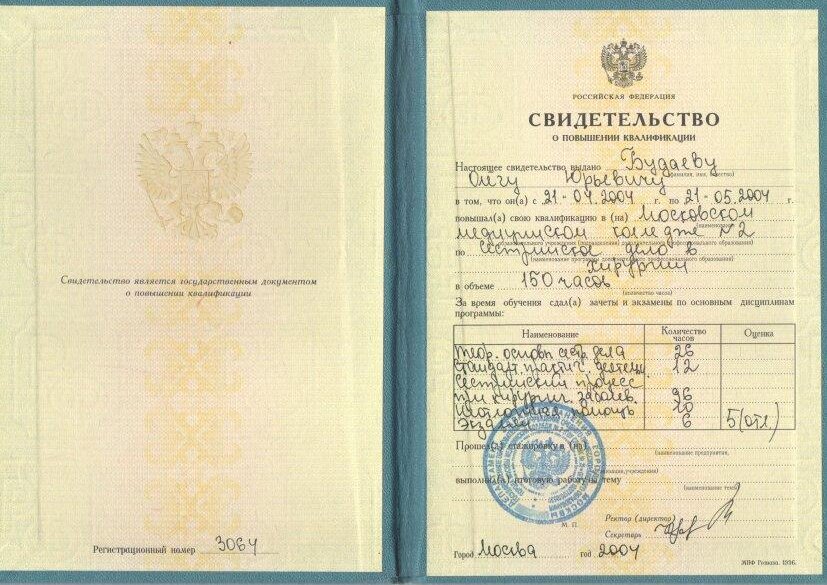 Свидетельство является государственным документом
о повышении квалификации
Регистрационный номер 3064
РОССИЙСКАЯ ФЕДЕРАЦИЯ
СВИДЕТЕЛЬСТВО
О ПОВЫШЕНИИ КВАЛИФИКАЦИИ
Настоящее свидетельство выдано Будаеву
(фамилия, имя, отчество)
Олегу Юрьевичу
в том, что он(а) с 21-04.2004 г. по 21-05.2004 г.
повышал(а) свою квалификацию в (на) Московском
(наименование)
медицинском колледже №2
образовательного учреждения (подразделения) дополнительного профессионального образования)
по сестринское дело в
(наименование программы дополнительного профессионального образования)
хирургии
в объеме 150 часов
(количество часов)
За время обучения сдал(а) зачеты и экзамены по основным дисциплинам
программы:
Наименование Количество часов Оценка
теор. основы сестр. дела 26
стандарт. практич. деятельн. 12
сестринский процесс
при хирургич. заболев. 96
неотложная помощь 10
экзамен 6 5(отл.)
Прошел(а) стажировку в (на)
(наименование предприятия,
организации, учреждения)
выполнил(а) итоговую работу на тему
(наименование темы)
М. П.
Ректор (директор)
Секретарь
Город Москва год 2004
МПФ Гознака. 1996.